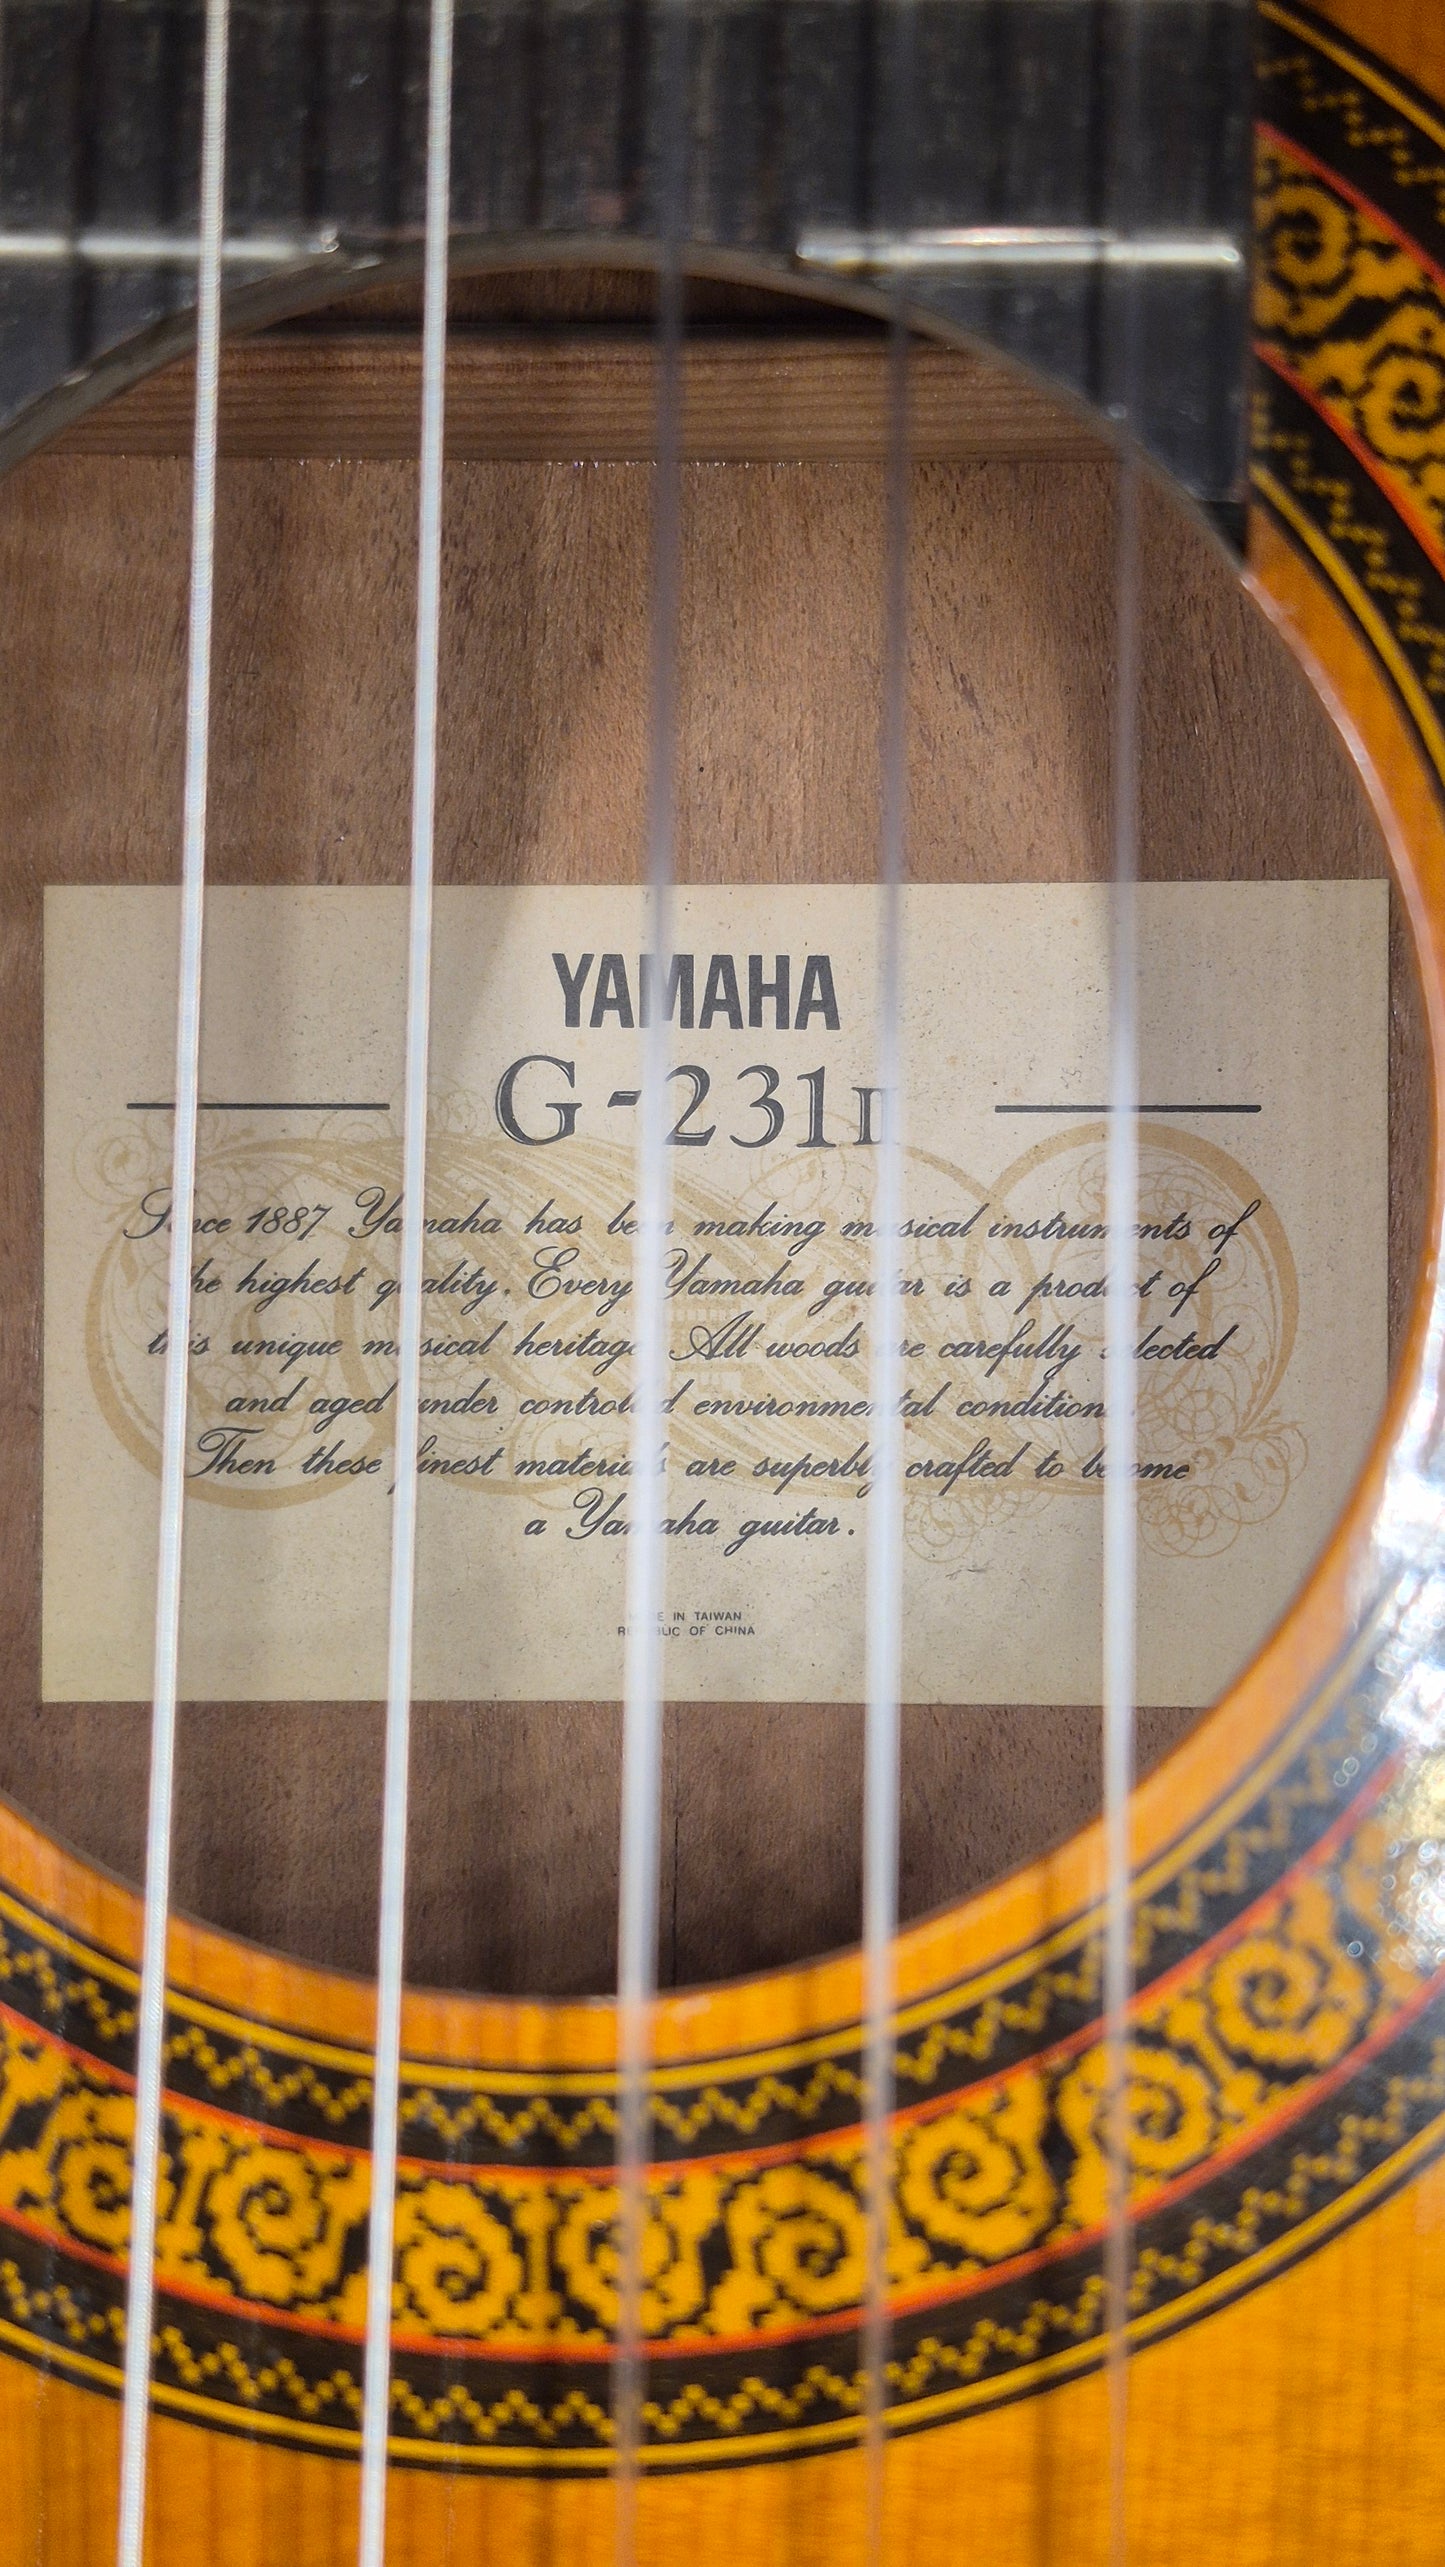 YAMAHA
G-231II
Since 1887 Yamaha has been making musical instruments of
the highest quality. Every Yamaha guitar is a product of
this unique musical heritage. All woods are carefully selected
and aged under controlled environmental conditions.
Then these finest materials are superbly crafted to become
a Yamaha guitar.
MADE IN TAIWAN
REPUBLIC OF CHINA